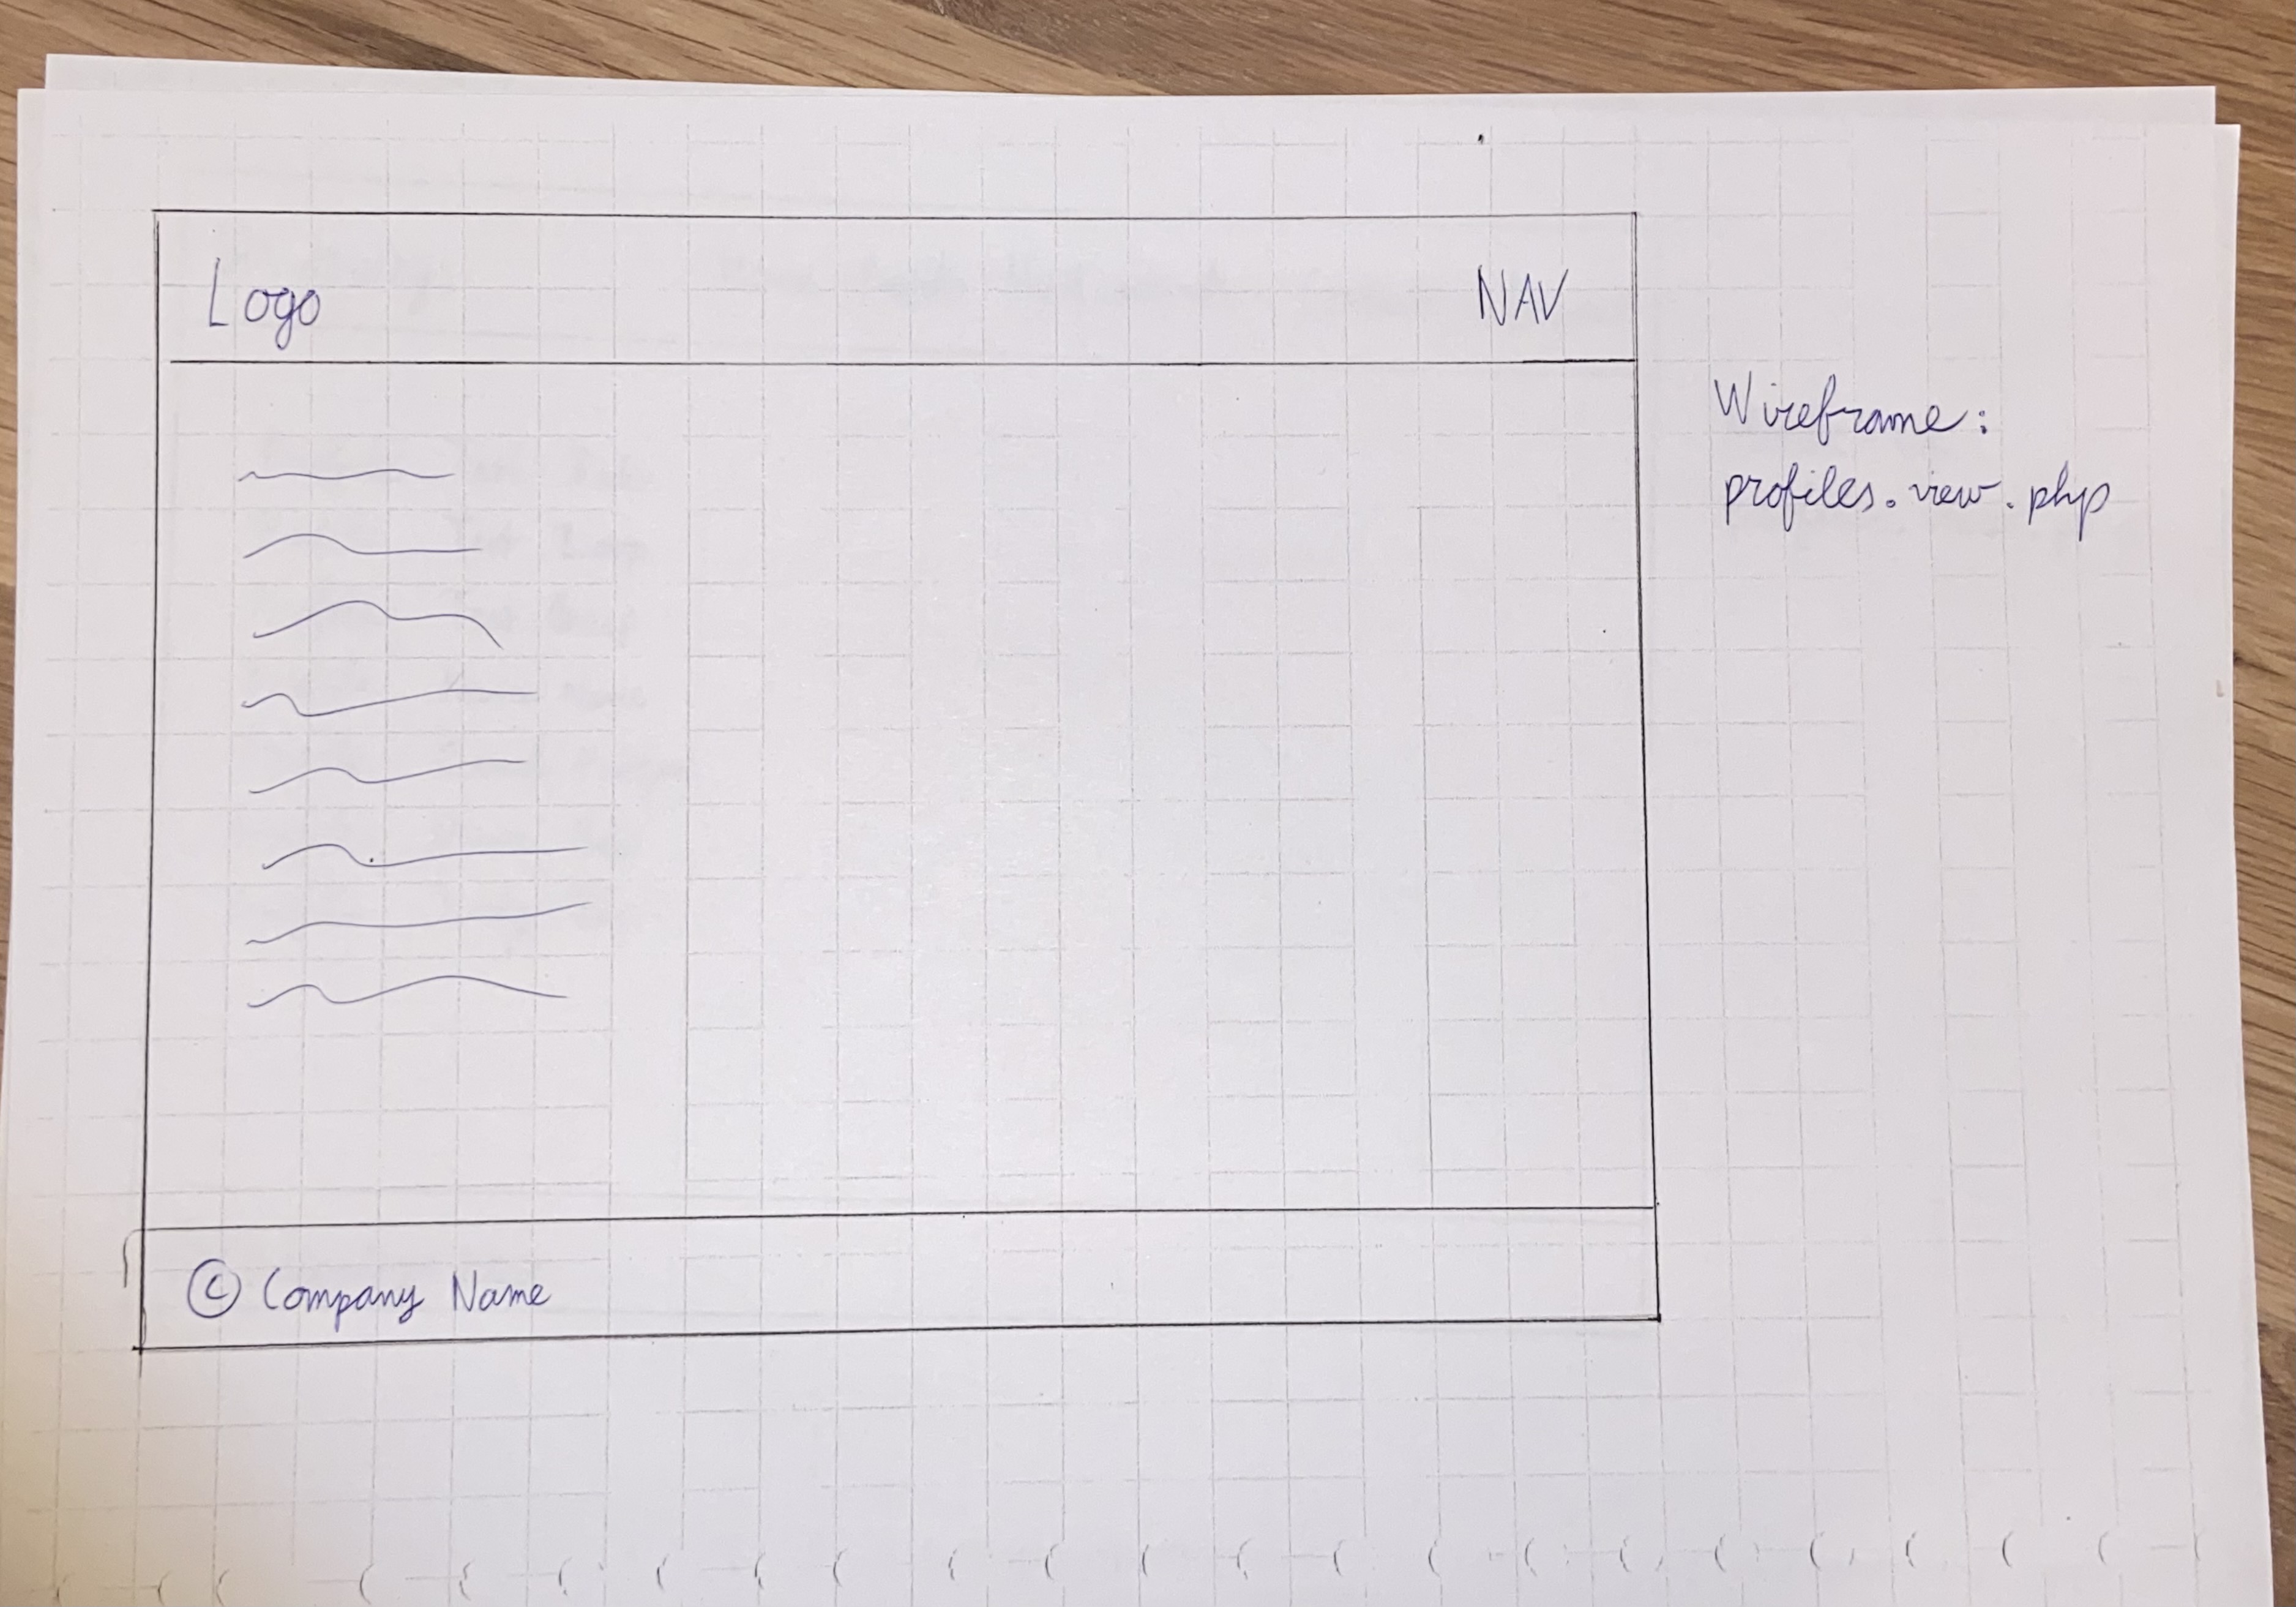 Logo
NAV
Wireframe:
profiles.view.php
© Company Name